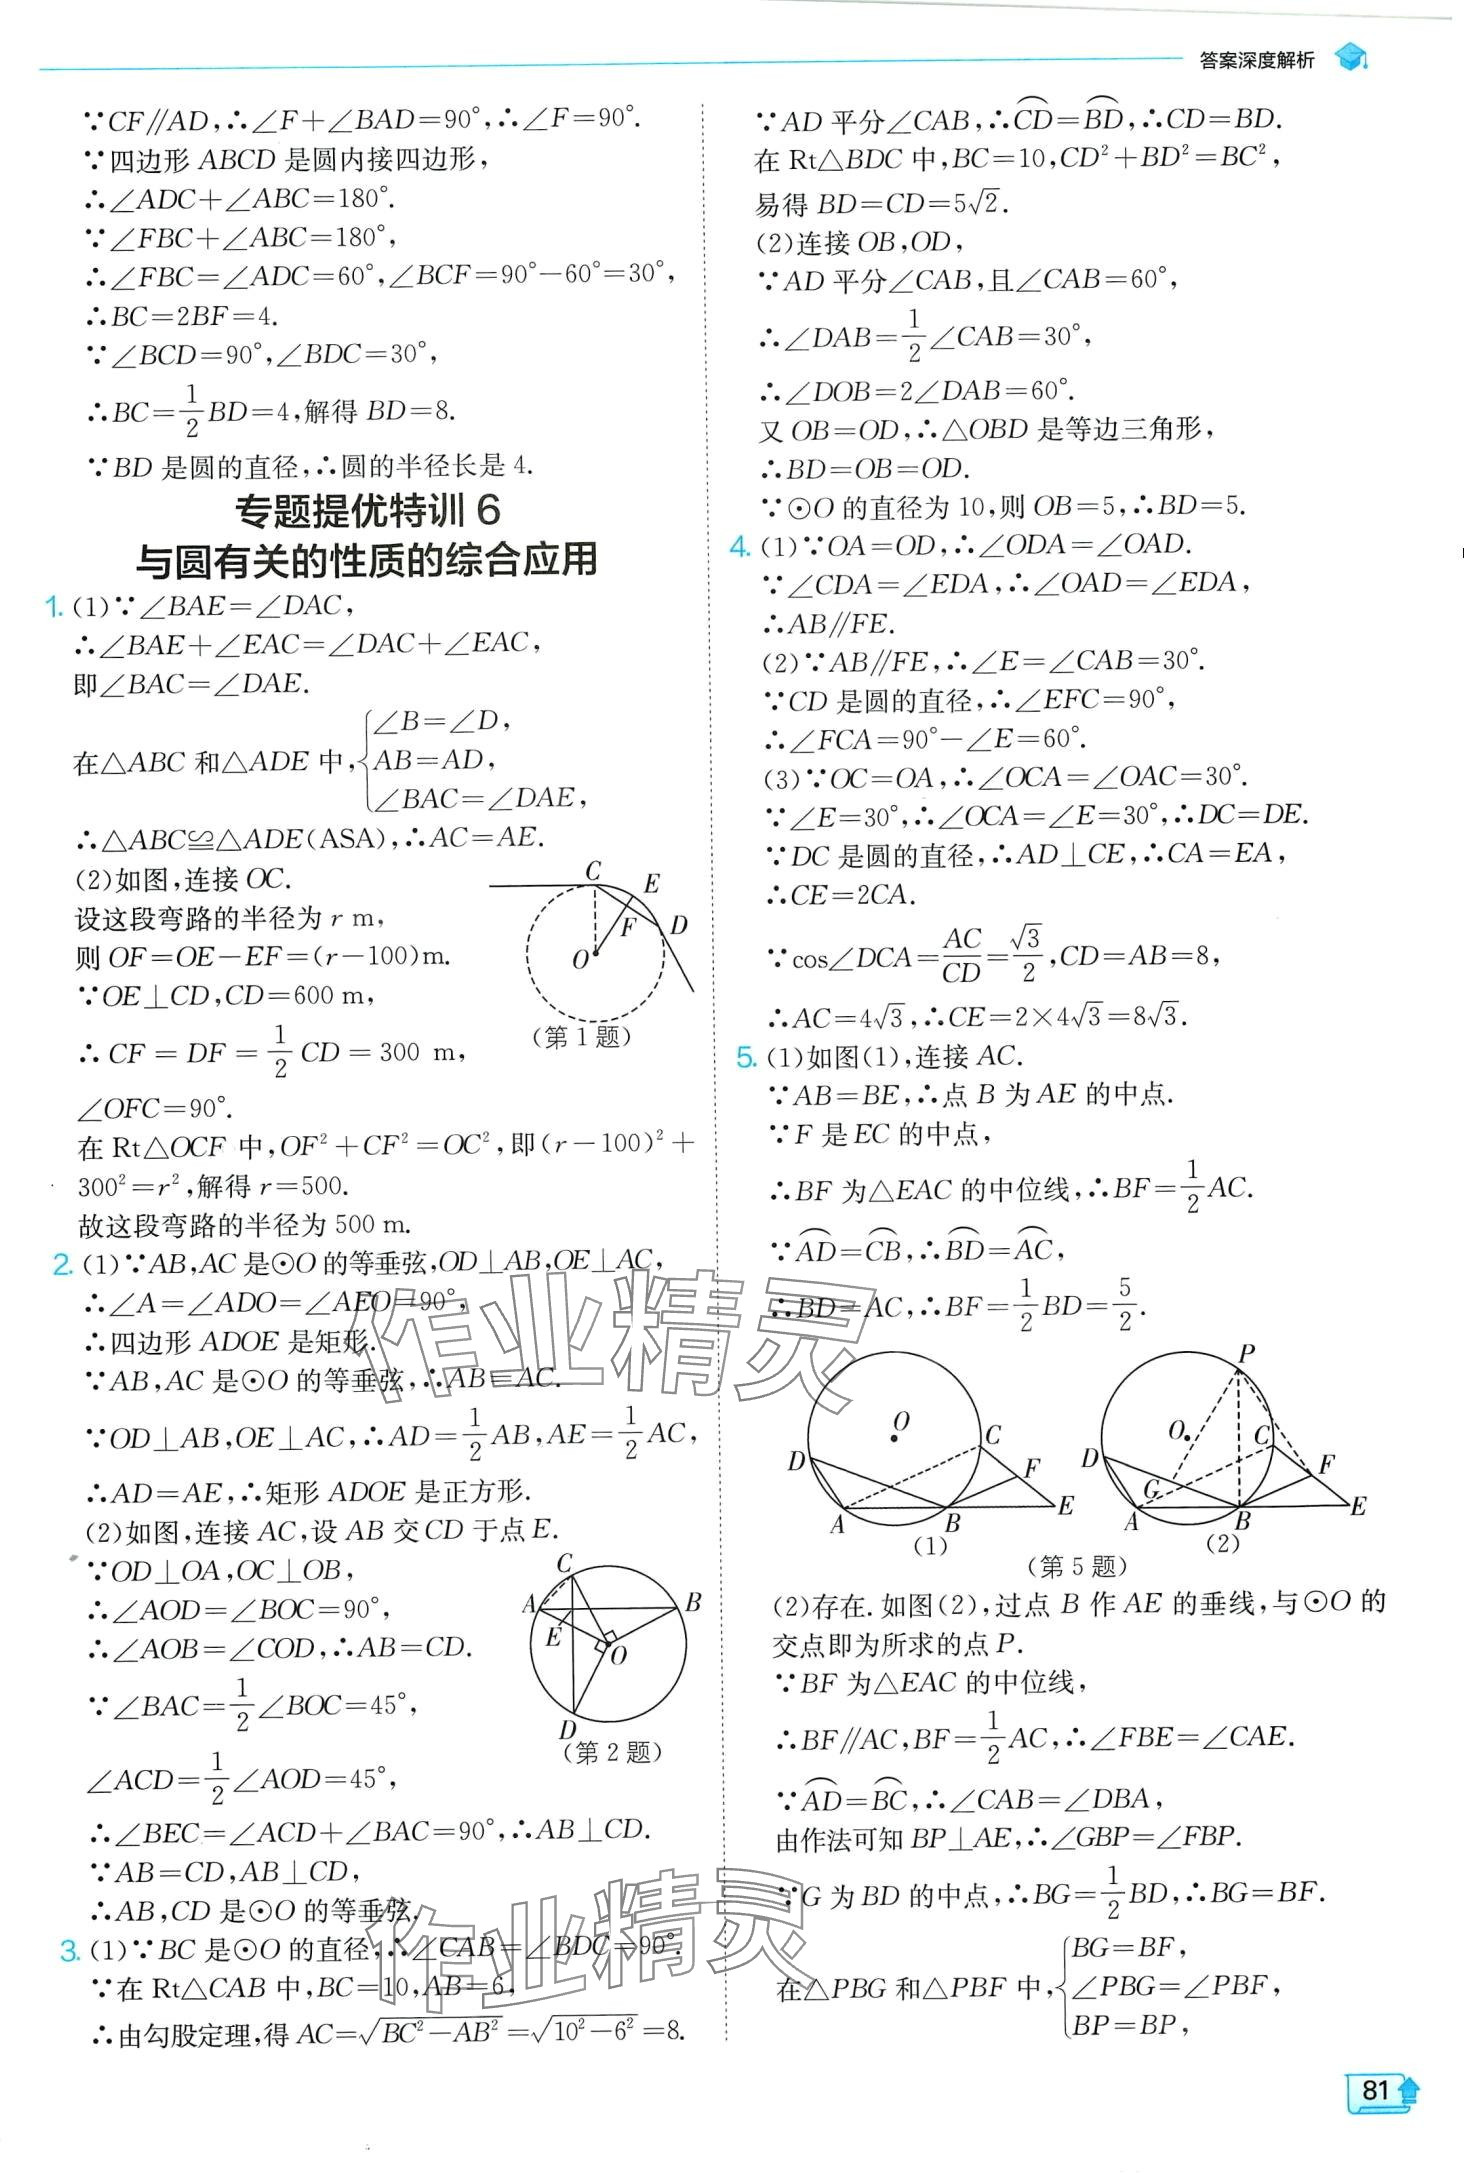 答案深度解析
∵CF∥AD,∴∠F+∠BAD=90°,∴∠F=90°.
∵四边形 ABCD 是圆内接四边形,
∴∠ADC+∠ABC=180°.
∵∠FBC+∠ABC=180°,
∴∠FBC=∠ADC=60°,∠BCF=90°-60°=30°,
∴BC=2BF=4.
∵∠BCD=90°,∠BDC=30°,
∴BC=1/2BD=4,解得 BD=8.
∵BD 是圆的直径,∴圆的半径长是 4.
专题提优特训 6
与圆有关的性质的综合应用
1. (1)∵∠BAE=∠DAC,
∴∠BAE+∠EAC=∠DAC+∠EAC,
即∠BAC=∠DAE.
在△ABC 和△ADE 中,{∠B=∠D,
AB=AD,
∠BAC=∠DAE,
∴△ABC≌△ADE(ASA),∴AC=AE.
(2)如图,连接 OC.
设这段弯路的半径为 r m,
则 OF=OE-EF=(r-100)m.
∵OE⊥CD,CD=600 m,
∴CF=DF=1/2CD=300 m,
∠OFC=90°.
C E F D O
(第 1 题)
在 Rt△OCF 中,OF²+CF²=OC²,即(r-100)²+
300²=r²,解得 r=500.
故这段弯路的半径为 500 m.
2. (1)∵AB,AC 是⊙O 的等垂弦,OD⊥AB,OE⊥AC,
∴∠A=∠ADO=∠AEO=90°,
∴四边形 ADOE 是矩形.
∵AB,AC 是⊙O 的等垂弦,∴AB=AC.
∵OD⊥AB,OE⊥AC,∴AD=1/2AB,AE=1/2AC,
∴AD=AE,∴矩形 ADOE 是正方形.
(2)如图,连接 AC,设 AB 交 CD 于点 E.
∵OD⊥OA,OC⊥OB,
∴∠AOD=∠BOC=90°,
∴∠AOB=∠COD,∴AB=CD.
∵∠BAC=1/2∠BOC=45°,
∠ACD=1/2∠AOD=45°,
C A B E O D
(第 2 题)
∴∠BEC=∠ACD+∠BAC=90°,∴AB⊥CD.
∵AB=CD,AB⊥CD,
∴AB,CD 是⊙O 的等垂弦.
3. (1)∵BC 是⊙O 的直径,∴∠CAB=∠BDC=90°.
∵在 Rt△CAB 中,BC=10,AB=6,
∴由勾股定理,得 AC=√(BC²-AB²)=√(10²-6²)=8.
∵AD 平分∠CAB,∴⌒CD=⌒BD,∴CD=BD.
在 Rt△BDC 中,BC=10,CD²+BD²=BC²,
易得 BD=CD=5√2.
(2)连接 OB,OD,
∵AD 平分∠CAB,且∠CAB=60°,
∴∠DAB=1/2∠CAB=30°,
∴∠DOB=2∠DAB=60°.
又 OB=OD,∴△OBD 是等边三角形,
∴BD=OB=OD.
∵⊙O 的直径为 10,则 OB=5,∴BD=5.
4. (1)∵OA=OD,∴∠ODA=∠OAD.
∵∠CDA=∠EDA,∴∠OAD=∠EDA,
∴AB∥FE.
(2)∵AB∥FE,∴∠E=∠CAB=30°.
∵CD 是圆的直径,∴∠EFC=90°,
∴∠FCA=90°-∠E=60°.
(3)∵OC=OA,∴∠OCA=∠OAC=30°.
∵∠E=30°,∴∠OCA=∠E=30°,∴DC=DE.
∵DC 是圆的直径,∴AD⊥CE,∴CA=EA,
∴CE=2CA.
∵cos∠DCA=AC/CD=√3/2,CD=AB=8,
∴AC=4√3,∴CE=2×4√3=8√3.
5. (1)如图(1),连接 AC.
∵AB=BE,∴点 B 为 AE 的中点.
∵F 是 EC 的中点,
∴BF 为△EAC 的中位线,∴BF=1/2AC.
∵⌒AD=⌒CB,∴⌒BD=⌒AC,
∴BD=AC,∴BF=1/2BD=5/2.
O D C F A B E
(1)
P O C D G F A B E
(2)
(第 5 题)
(2)存在.如图(2),过点 B 作 AE 的垂线,与⊙O 的
交点即为所求的点 P.
∵BF 为△EAC 的中位线,
∴BF∥AC,BF=1/2AC,∴∠FBE=∠CAE.
∵⌒AD=⌒BC,∴∠CAB=∠DBA,
由作法可知 BP⊥AE,∴∠GBP=∠FBP.
∵G 为 BD 的中点,∴BG=1/2BD,∴BG=BF.
在△PBG 和△PBF 中,{BG=BF,
∠PBG=∠PBF,
BP=BP,
作业精灵
作业精灵
81